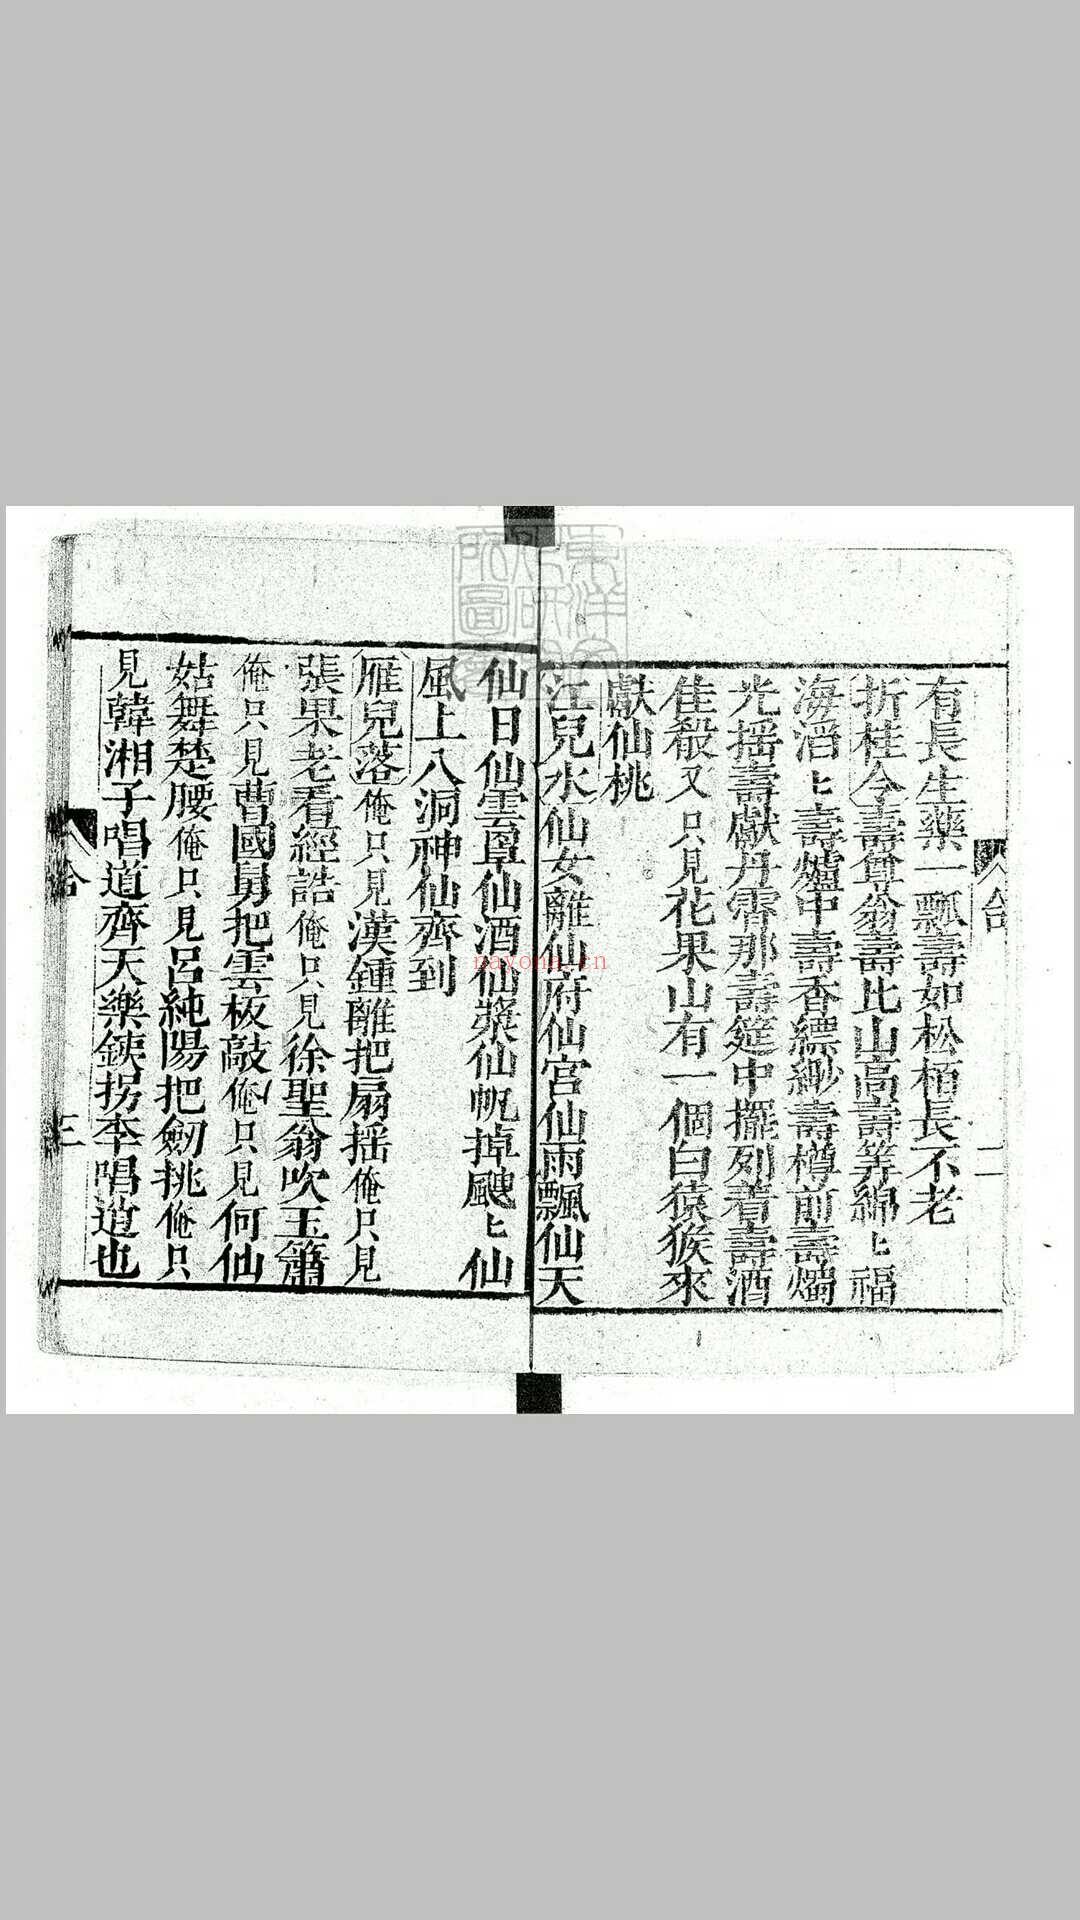 有長生藥一瓢壽如松栢長不老
折桂令壽尊翁壽比山高壽筭綿〻福
海滔〻壽爐中壽香縹緲壽樽前壽燭
光揺壽獻丹霄那壽筵中擺列着壽酒
佳殽又只見花果山有一個白猿猴來
獻仙桃
江兒水仙女離仙府仙宫仙雨飄仙天
仙日仙雲草仙酒仙漿仙帆掉颭〻仙
風上八洞神仙齊到
雁兒落俺只見漢鍾離把扇揺俺只見
張果老看經誥俺只見徐聖翁吹玉簫
俺只見曹國舅把雲板敲俺只見何仙
姑舞楚腰俺只見呂純陽把劒挑俺只
見韓湘子唱道齊天樂鉄拐李唱道也
二
三
nayona.cn